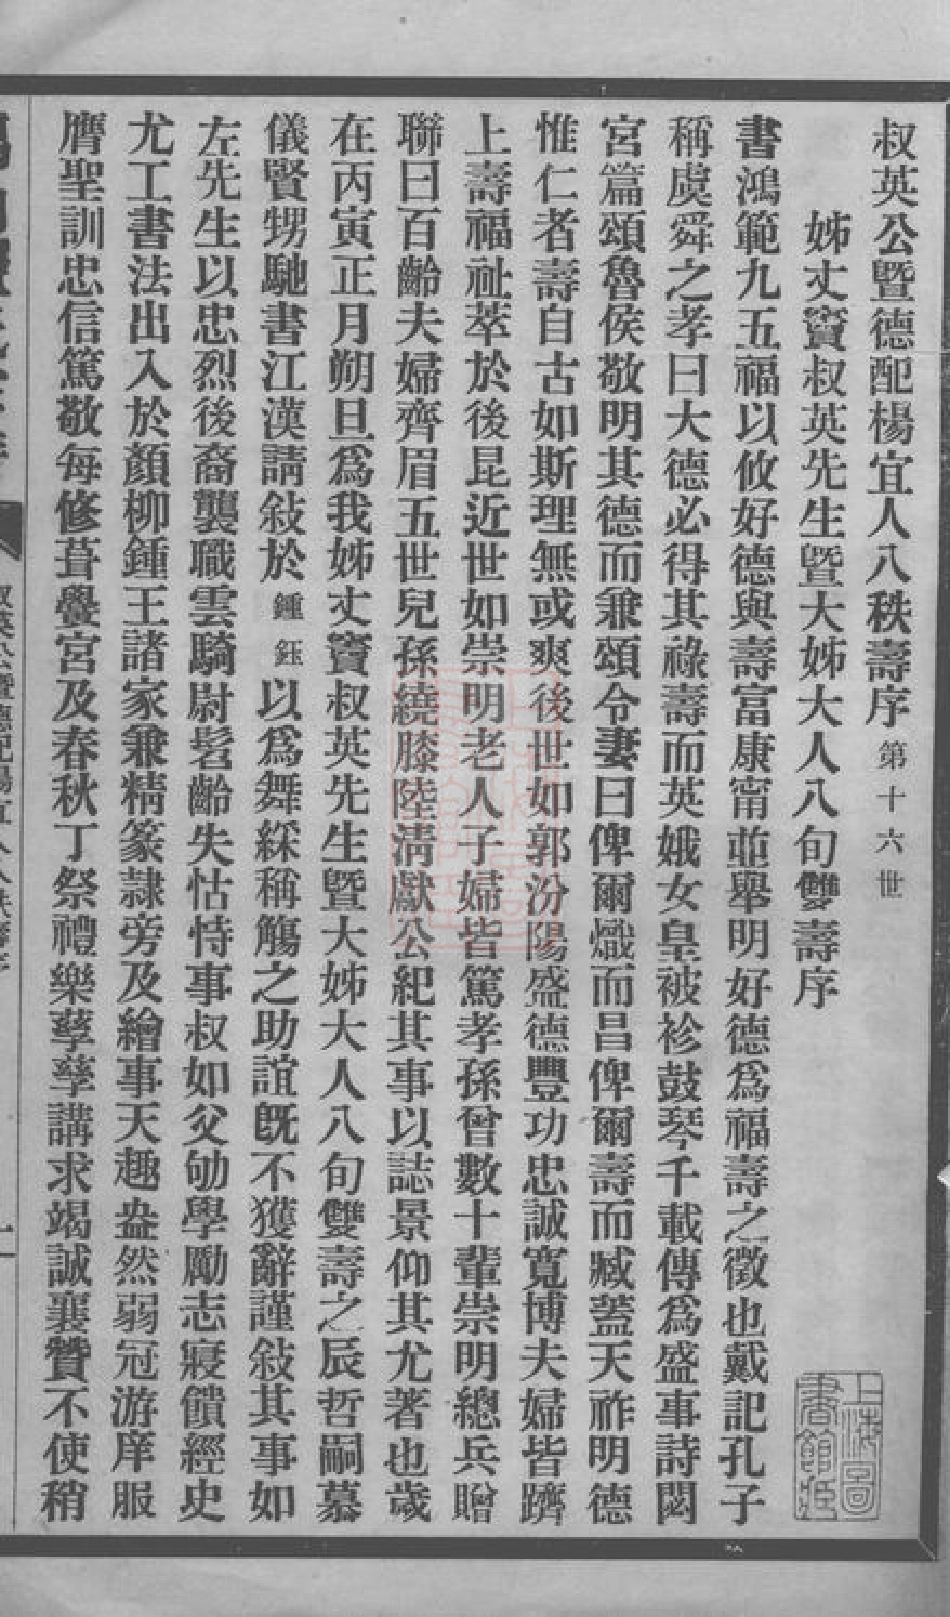 叔英公暨德配楊宜人八秩壽序第十六世
姊丈竇叔英先生暨大姊大人八旬雙壽序
書鴻範九五福以攸好德與壽富康甯並舉明好德爲福壽之徵也戴記孔子
稱虞舜之孝曰大德必得其祿壽而英娥女皇被袗鼓琴千載傳爲盛事詩閟
宮篇頌魯侯敬明其德而兼頌令妻曰俾爾熾而昌俾爾壽而臧蓋天祚明德
惟仁者壽自古如斯理無或爽後世如郭汾陽盛德豐功忠誠寬博夫婦皆躋
上壽福祉萃於後昆近世如崇明老人子婦皆篤孝孫曾數十輩崇明總兵贈
聯曰百齡夫婦齊眉五世兒孫繞膝陸清獻公紀其事以誌景仰其尤著也歲
在丙寅正月朔旦爲我姊丈竇叔英先生暨大姊大人八旬雙壽之辰哲嗣慕
儀賢甥馳書江漢請敍於鍾鈺以爲舞綵稱觴之助誼旣不獲辭謹敍其事如
左先生以忠烈後裔襲職雲騎尉髫齡失怙恃事叔如父劬學勵志寢饋經史
尤工書法出入於顏柳鍾王諸家兼精篆隷旁及繪事天趣盎然弱冠游庠服
膺聖訓忠信篤敬每修葺黌宮及春秋丁祭禮樂孳孳講求竭誠襄贊不使稍
上海圖書館藏